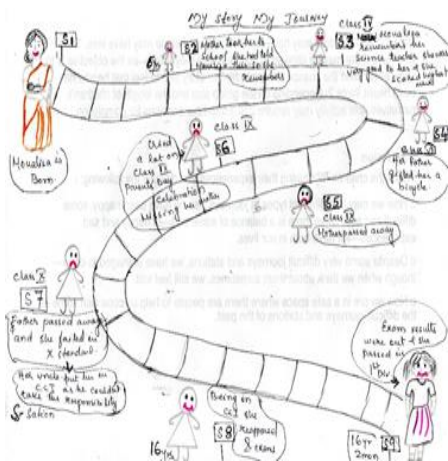 My story My Journey
S1
Monalisa is
Born
6yrs
S2
Mother took her to
School. She had told
Monalisa this so she
Remembers
class IV
S3
Monalisa
remembers her
science teacher should
very good to her as she
scored highest
marks
S4
class VI
Father
gifted her a
bicycle
S5
class IX
Mother passed away
class IX
S6
Cried
a lot on
class IX
Parents Day
Celebration
Missing her mother
class X
S7
Father passed away
and she failed in
X standard
Her uncle put her in
CCI as he couldn't
take the responsibility
16yrs
Being in
CCI she
reappeared
X exams
S8
Exam results
were out & she
passed in
1st Div
16yr
2mon
S9